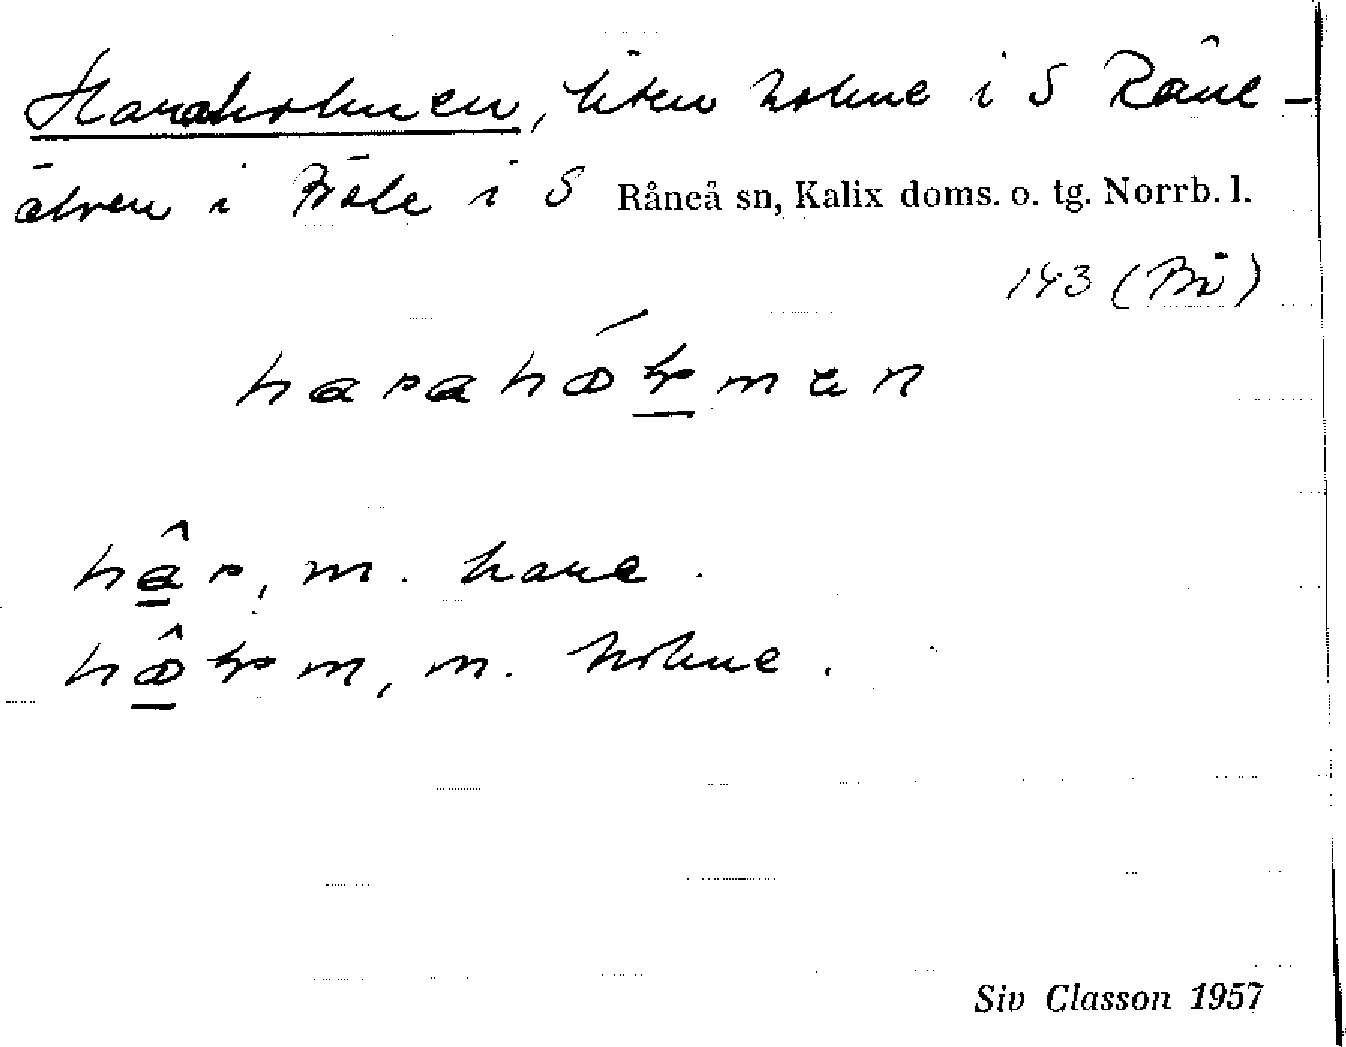 Haraholmen, liten holme i S Råne-
älven i Böle i S Råneå sn, Kalix doms. o. tg. Norrb. l.
143 (Bö)
haraholmen
har, m. hare.
holm, m. holme.
Siv Classon 1957